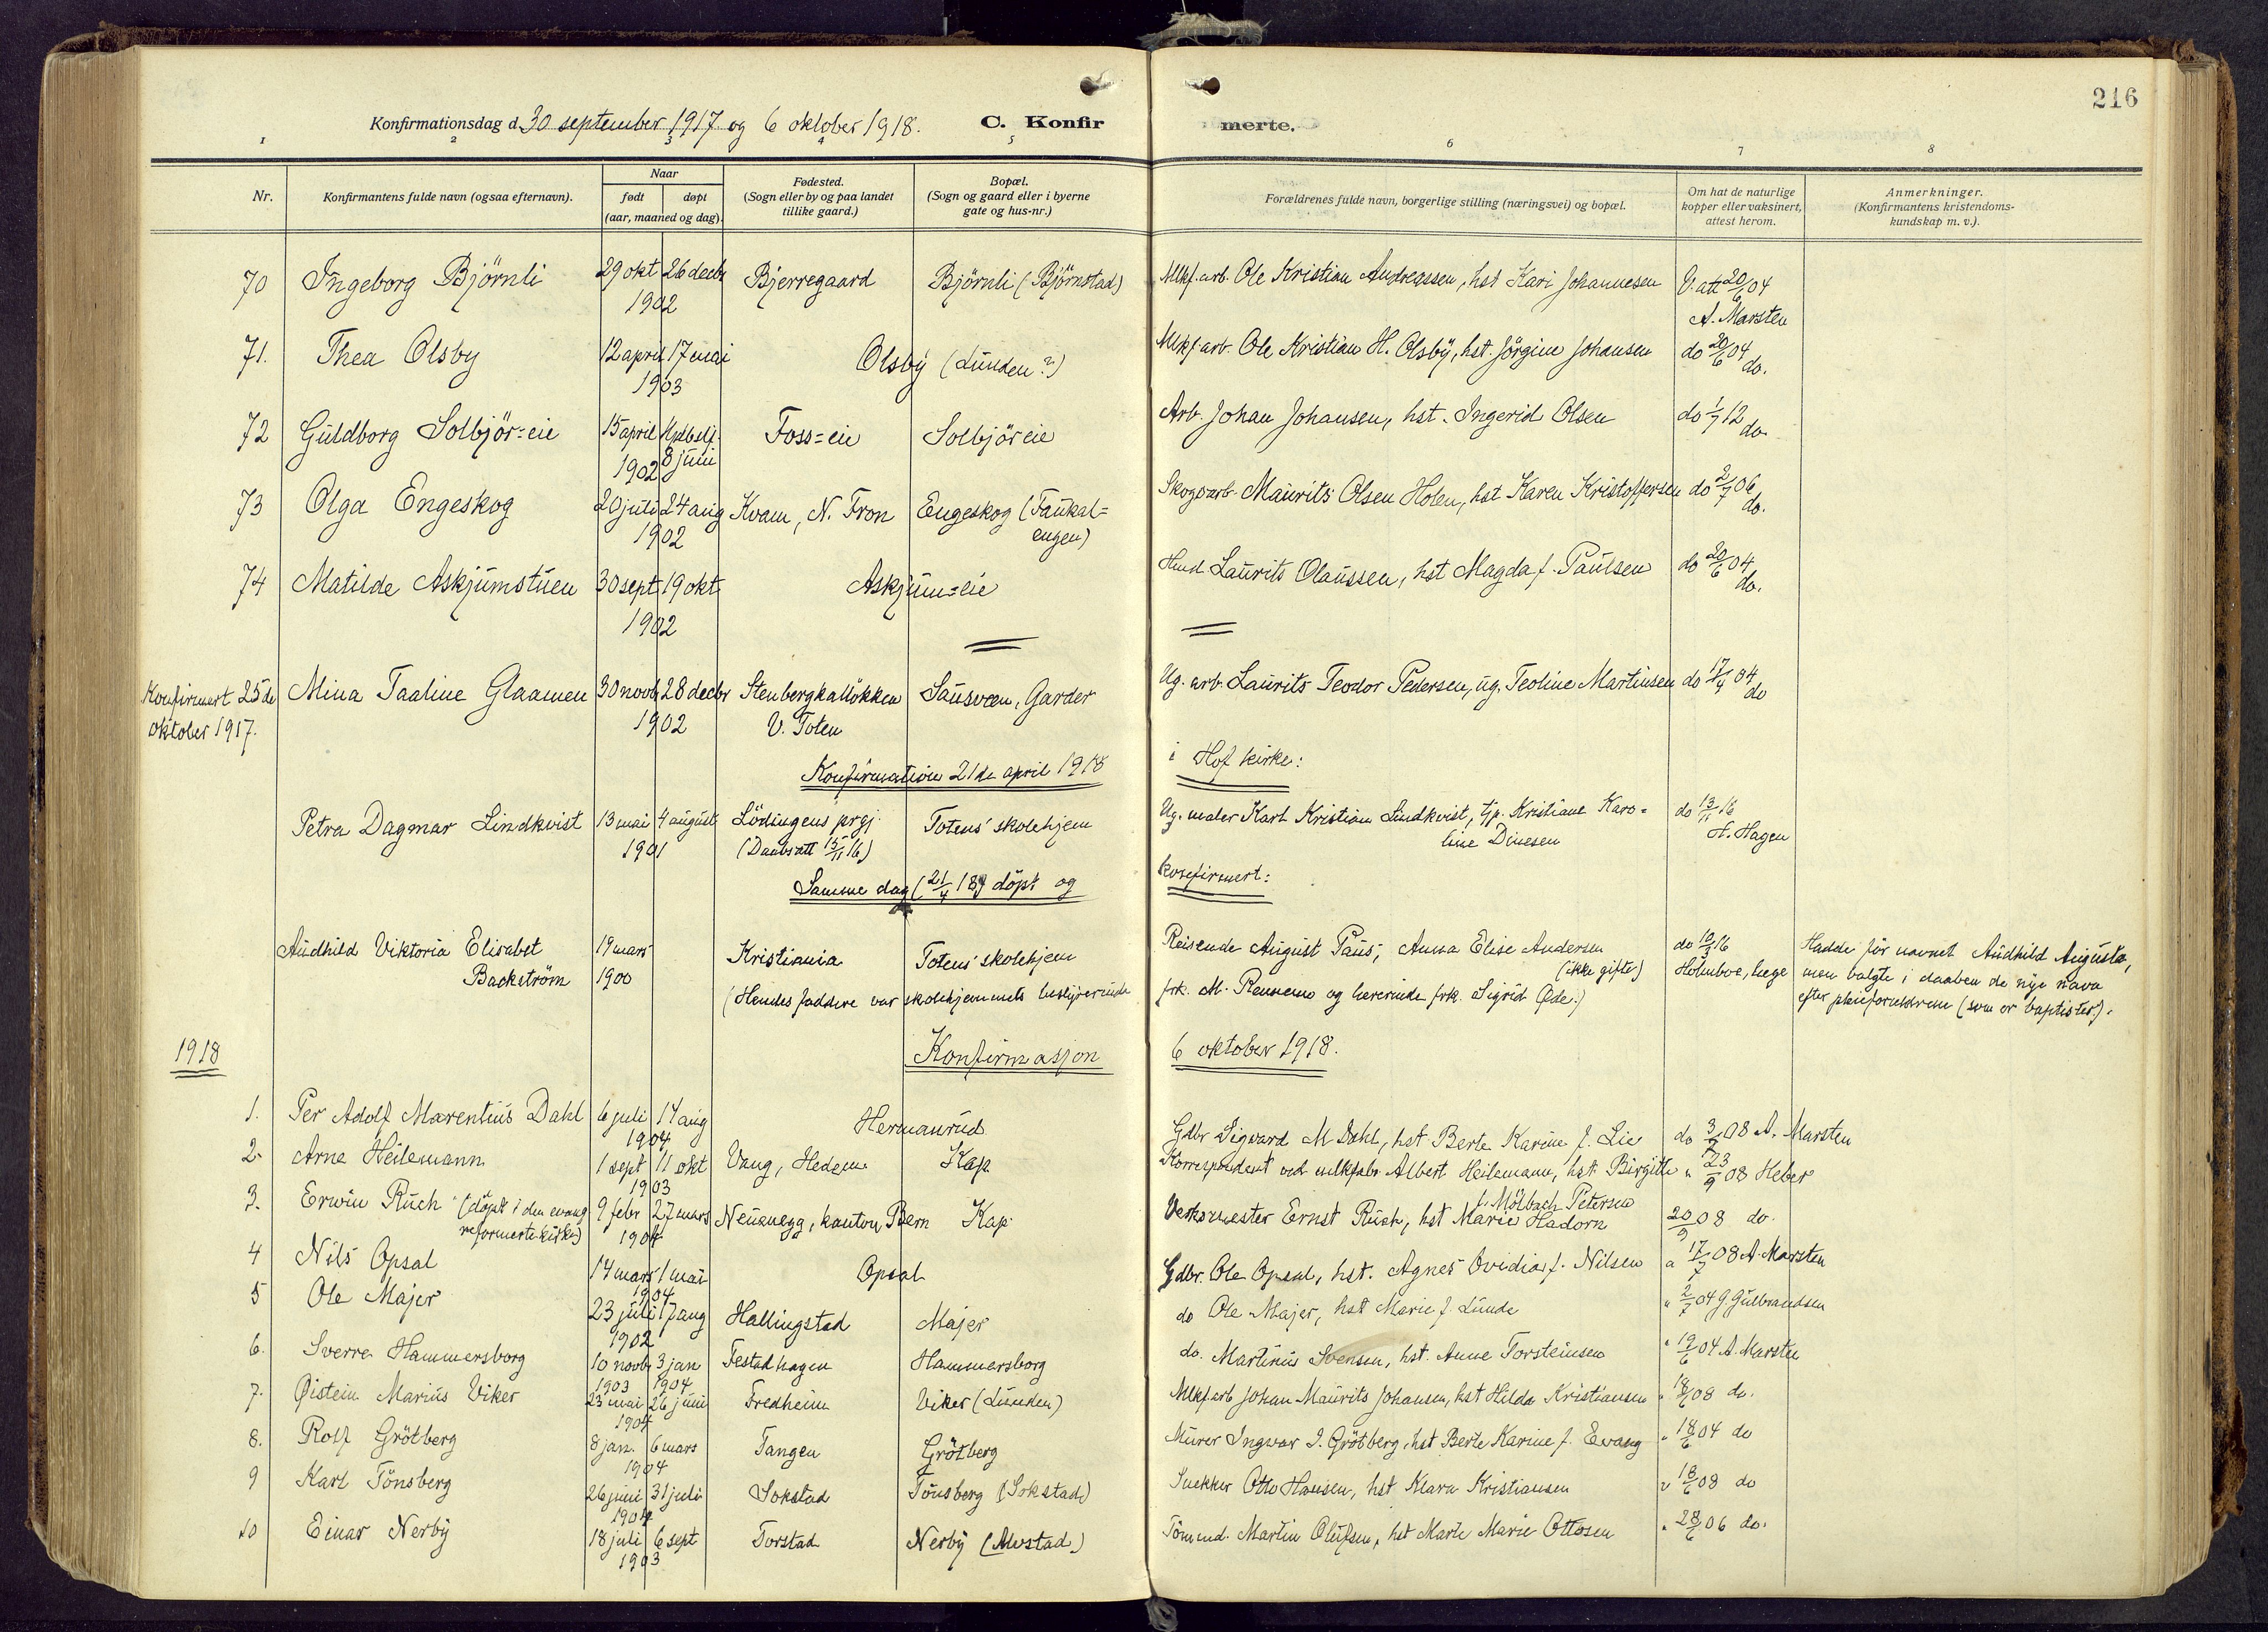 216
Konfirmationsdag d. 30 september 1917 og 6 oktober 1918. C. Konfir merte.
1 2 3 4 5 6 7 8
Nr. Konfirmantens fulde navn (ogsaa efternavn). Naar født døpt (aar, maaned og dag). Fødested. (Sogn eller by og paa landet tillike gaard.) Bopæl. (Sogn og gaard eller i byerne gate og hus-nr.) Forældrenes fulde navn, borgerlige stilling (næringsvei) og bopæl. Om hat de naturlige kopper eller vaksinert, attest herom. Anmerkninger. (Konfirmantens kristendoms-kundskap m. v.).
70 Ingeborg Björnli 29 okt 26 decbr Bjerregaard Björnli (Björnstad) Mlkf.arb. Ole Kristian Andreassen, hst Kari Johannesen V. att 20/6 04
1902 A. Marsten
71. Thea Olsby 12 april 17 mai Olsby (Lunden?) Mlkf arb. Ole Kristian H. Olsby, hst. Jörgine Johansen do 20/6 04 do.
1903
72 Guldborg Solbjör=eie 15 april Hjdbslf. Foss=eie Solbjöreie Arb. Johan Johansen, hst. Ingerid Olsen do 1/7 12 do.
1902 8 juni
73 Olga Engeskog 20 juli 24 aug Kvam, N. Fron Engeskog (Faukal=
1902 engen) Skogsarb. Maurits Olsen Holen, hst Karen Kristoffersen do 2/7 06 do.
74 Matilde Askjumstuen 30 sept 19 okt Askjum=eie Hmd Laurits Olaussen, hst Magda f. Paulsen do 20/6 04 do.
1902
Konfirmert 25de Mina Taaline Glaamen 30 novb 28 decbr Stenbergkalløkken Sausveen, Garder Ug. arb. Laurits Teodor Pedersen, ug. Teoline Martinsen do 17/4 04 do
oktober 1917. 1902 V. Toten
Konfirmation 21de april 1918 i Hof kirke:
Petra Dagmar Lindkvist 13 mai 4 august Lödingens prgj. Totens skolehjem Ug. maler Karl Kristian Lindkvist, tjp. Kristiane Karo= do 13/11 16
1901 (Daabsatt 15/11 16) line Dinesen H. Hagen
Samme dag (21/4 18) döpt og konfirmert:
Audhild Viktoria Elisabet 19 mars Kristiania Totens skolehjem Reisende August Paus, Anna Elise Andersen do 10/3 16 Hadde för navnet Audhild Augusta,
Backström 1900 (ikke gifte) Holmboe, læge men valgte i daaben de nye navn
(Hendes faddere var skolehjemmets bestyrerinde frk. M. Rennemo og lærerinde frk. Sigrid Øde.) efter pleieforeldrene (som er baptister).
1918 Konfirmasjon 6 oktober 1918.
1. Per Adolf Marentius Dahl 6 juli 14 aug Hermanrud Gdbr Sigvard M Dahl, hst. Berte Karine f. Lie do 3/7 08 A. Marsten
1904
2. Arne Heilemann 1 sept 11 okt Vang, Hedem. Kap Korrespondent ved mlkfabr. Albert Heilemann, hst Birgitte " 23/9 08 Heber
1903 f. Mölbach Petersen
3. Erwin Ruch (döpt i den evang 9 febr 27 mars Neuenegg, kanton Bern Kap Verksmester Ernst Ruch, hst Marie Hadorn 20/9 08 do.
reformerte kirke) 1904
4 Nils Opsal 14 mars 1 mai Opsal Gdbr. Ole Opsal, hst. Agnes Ovidia f. Nilsen " 17/7 08 A. Marsten
1904
5 Ole Majer 23 juli 17 aug Hallingstad Majer do Ole Majer, hst Marie f. Lunde " 2/7 04 G Gulbrandsen
1902
6. Sverre Hammersborg 10 novb 3 jan Festadhagen Hammersborg do. Martinus Svensen, hst. Anne Torsteinsen " 19/6 04 A. Marsten
1903 1904
7. Øistein Marius Viker 23 mai 26 juni Fredheim Viker (Lunden) Mlkfarb Johan Maurits Johansen, hst Hilda Kristiansen " 18/6 08 do.
1904
8. Rolf Grötberg 8 jan. 6 mars Tangen Grötberg Murer Ingvar I. Grötberg, hst Berte Karine f. Evang " 18/6 04 do
1904
9 Karl Tönsberg 26 juni 31 juli Sokstad Tönsberg (Sokstad) Snekker Otto Hansen, hst Klara Kristiansen " 18/6 08 do
1904
10 Einar Nerby 18 juli 6 sept Torstad Nerby (Alvstad) Tömmd. Martin Olufsen, hst Marte Marie Ottosen " 28/6 06 do.
1903